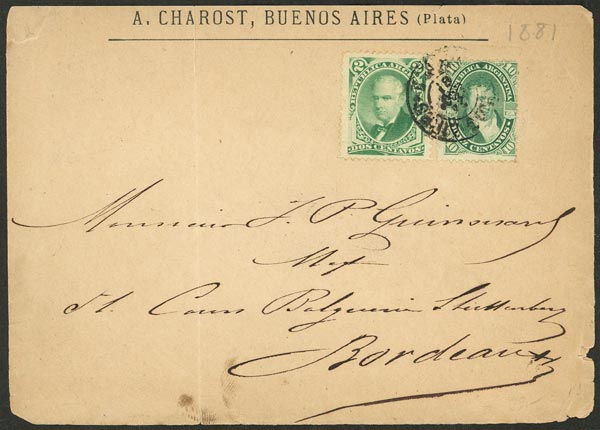 A. CHAROST, BUENOS AIRES (Plata)
1881
2 REPUBLICA ARGENTINA 2
DOS CENTAVOS
10 REPUBLICA ARGENTINA 10
DIEZ CENTAVOS
10 10
Monsieur J. P.
Cours Balguerie Stuttenberg
Bordeaux